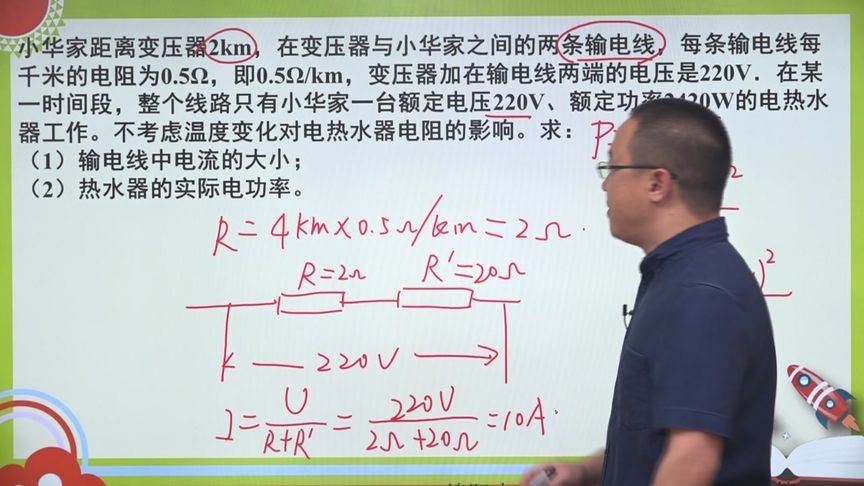 小华家距离变压器2km，在变压器与小华家之间的两条输电线，每条输电线每
千米的电阻为0.5Ω，即0.5Ω/km，变压器加在输电线两端的电压是220V．在某
一时间段，整个线路只有小华家一台额定电压220V、额定功率2420W的电热水
器工作。不考虑温度变化对电热水器电阻的影响。求：
P=
（1）输电线中电流的大小；
（2）热水器的实际电功率。
2
R=4km×0.5Ω/km=2Ω.
R=2Ω R'=20Ω
)²
220V
I=U/(R+R')=220V/(2Ω+20Ω)=10A.